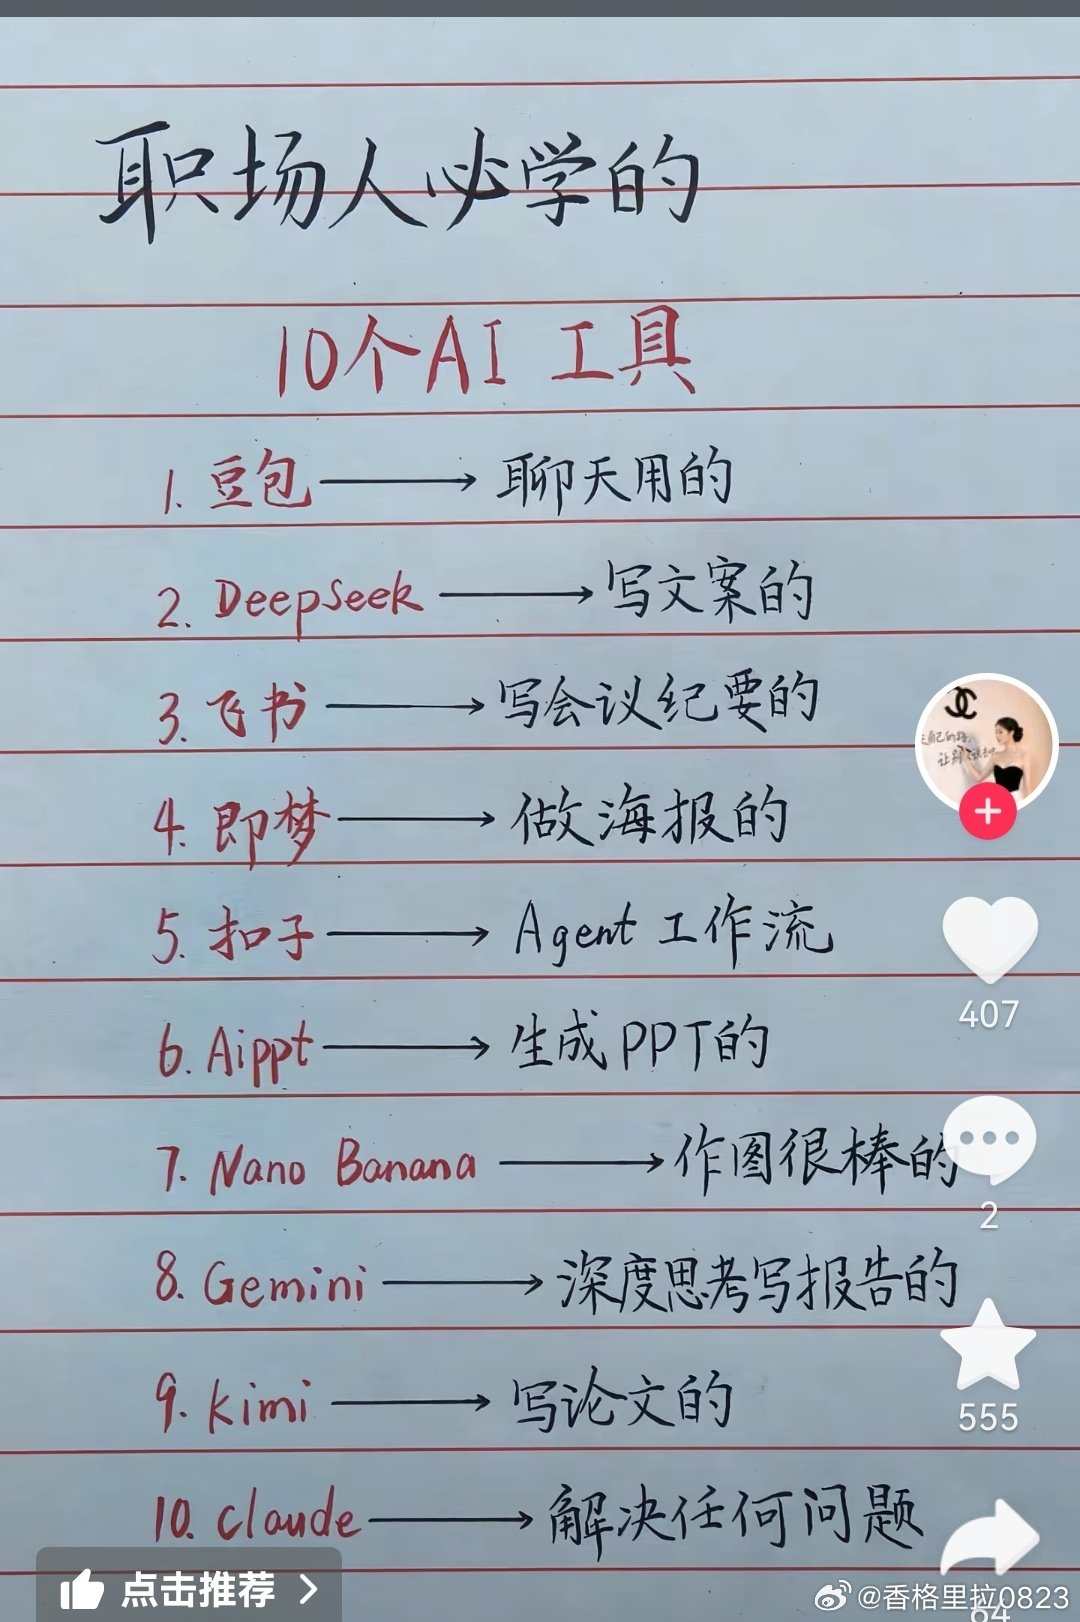 职场人必学的
10个AI 工具
1. 豆包 → 聊天用的
2. DeepSeek → 写文案的
3. 飞书 → 写会议纪要的
4. 即梦 → 做海报的
5. 扣子 → Agent 工作流
6. Aippt → 生成PPT的
7. Nano Banana → 作图很棒的
8. Gemini → 深度思考写报告的
9. kimi → 写论文的
10. claude → 解决任何问题
407
2
555
64
点击推荐
@香格里拉0823